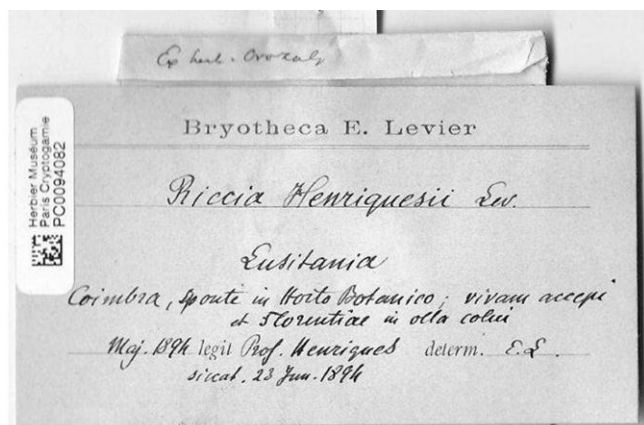 Ex herb. Crozals
Herbier Muséum
Paris Cryptogamie
PC0094082
Bryotheca E. Levier
Riccia Henriquesii Lev.
Lusitania
Coimbra, sponte in Horto Botanico; vivam accepi
et Florentiae in olla colui
Maj. 1894 legit Prof. Henriques determ. E. L.
siccat. 23 Jun. 1894